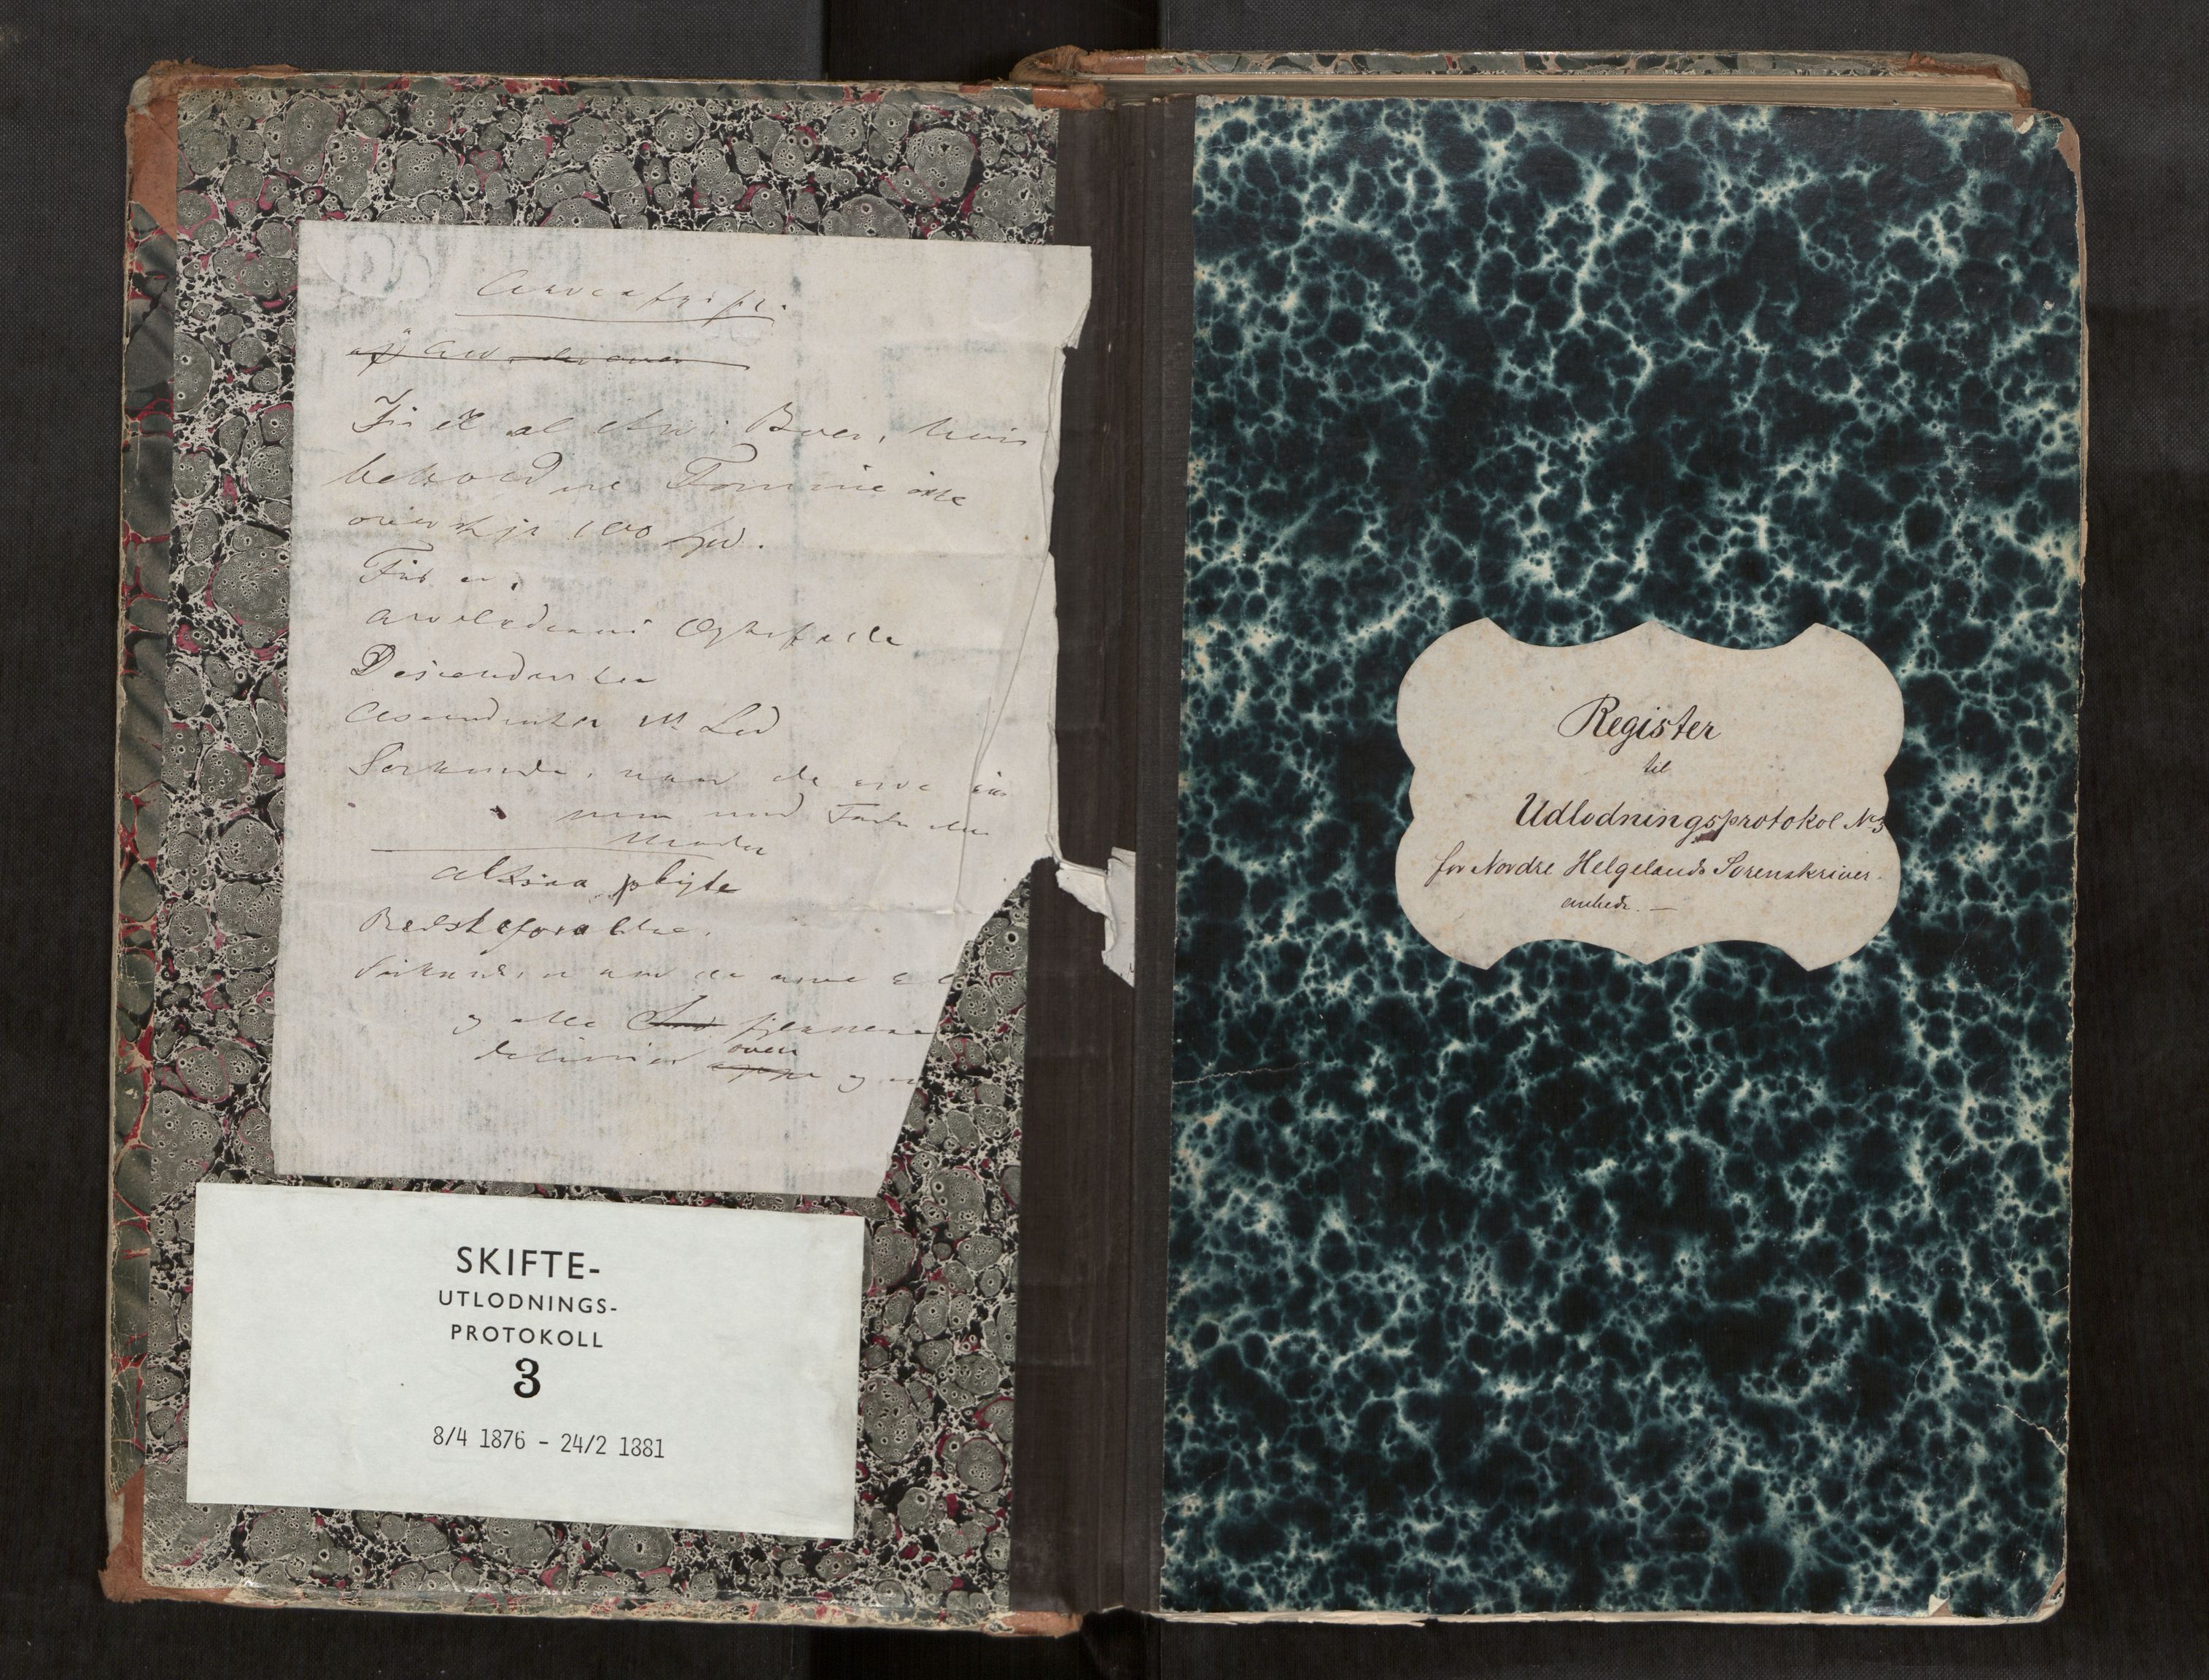 Arveafgift.
Fri er al Arv i Boer, hvis
beholdne Formue ikke
overstiger 100 Spd.
Fri er,
arveladerens Ægtefælle
Descendenter
Ascendenter
Søskende, naar de arve
med Fader eller
Moder
altsaa pligte
Bedsteforældre.
Søskende, naar de arve
og alle fjernere
over
SKIFTE-
UTLODNINGS-
PROTOKOLL
3
8/4 1876 - 24/2 1881
Register
til
Udlodningsprotokol No 3
for Nordre Helgelands Sorenskriver-
embede. —